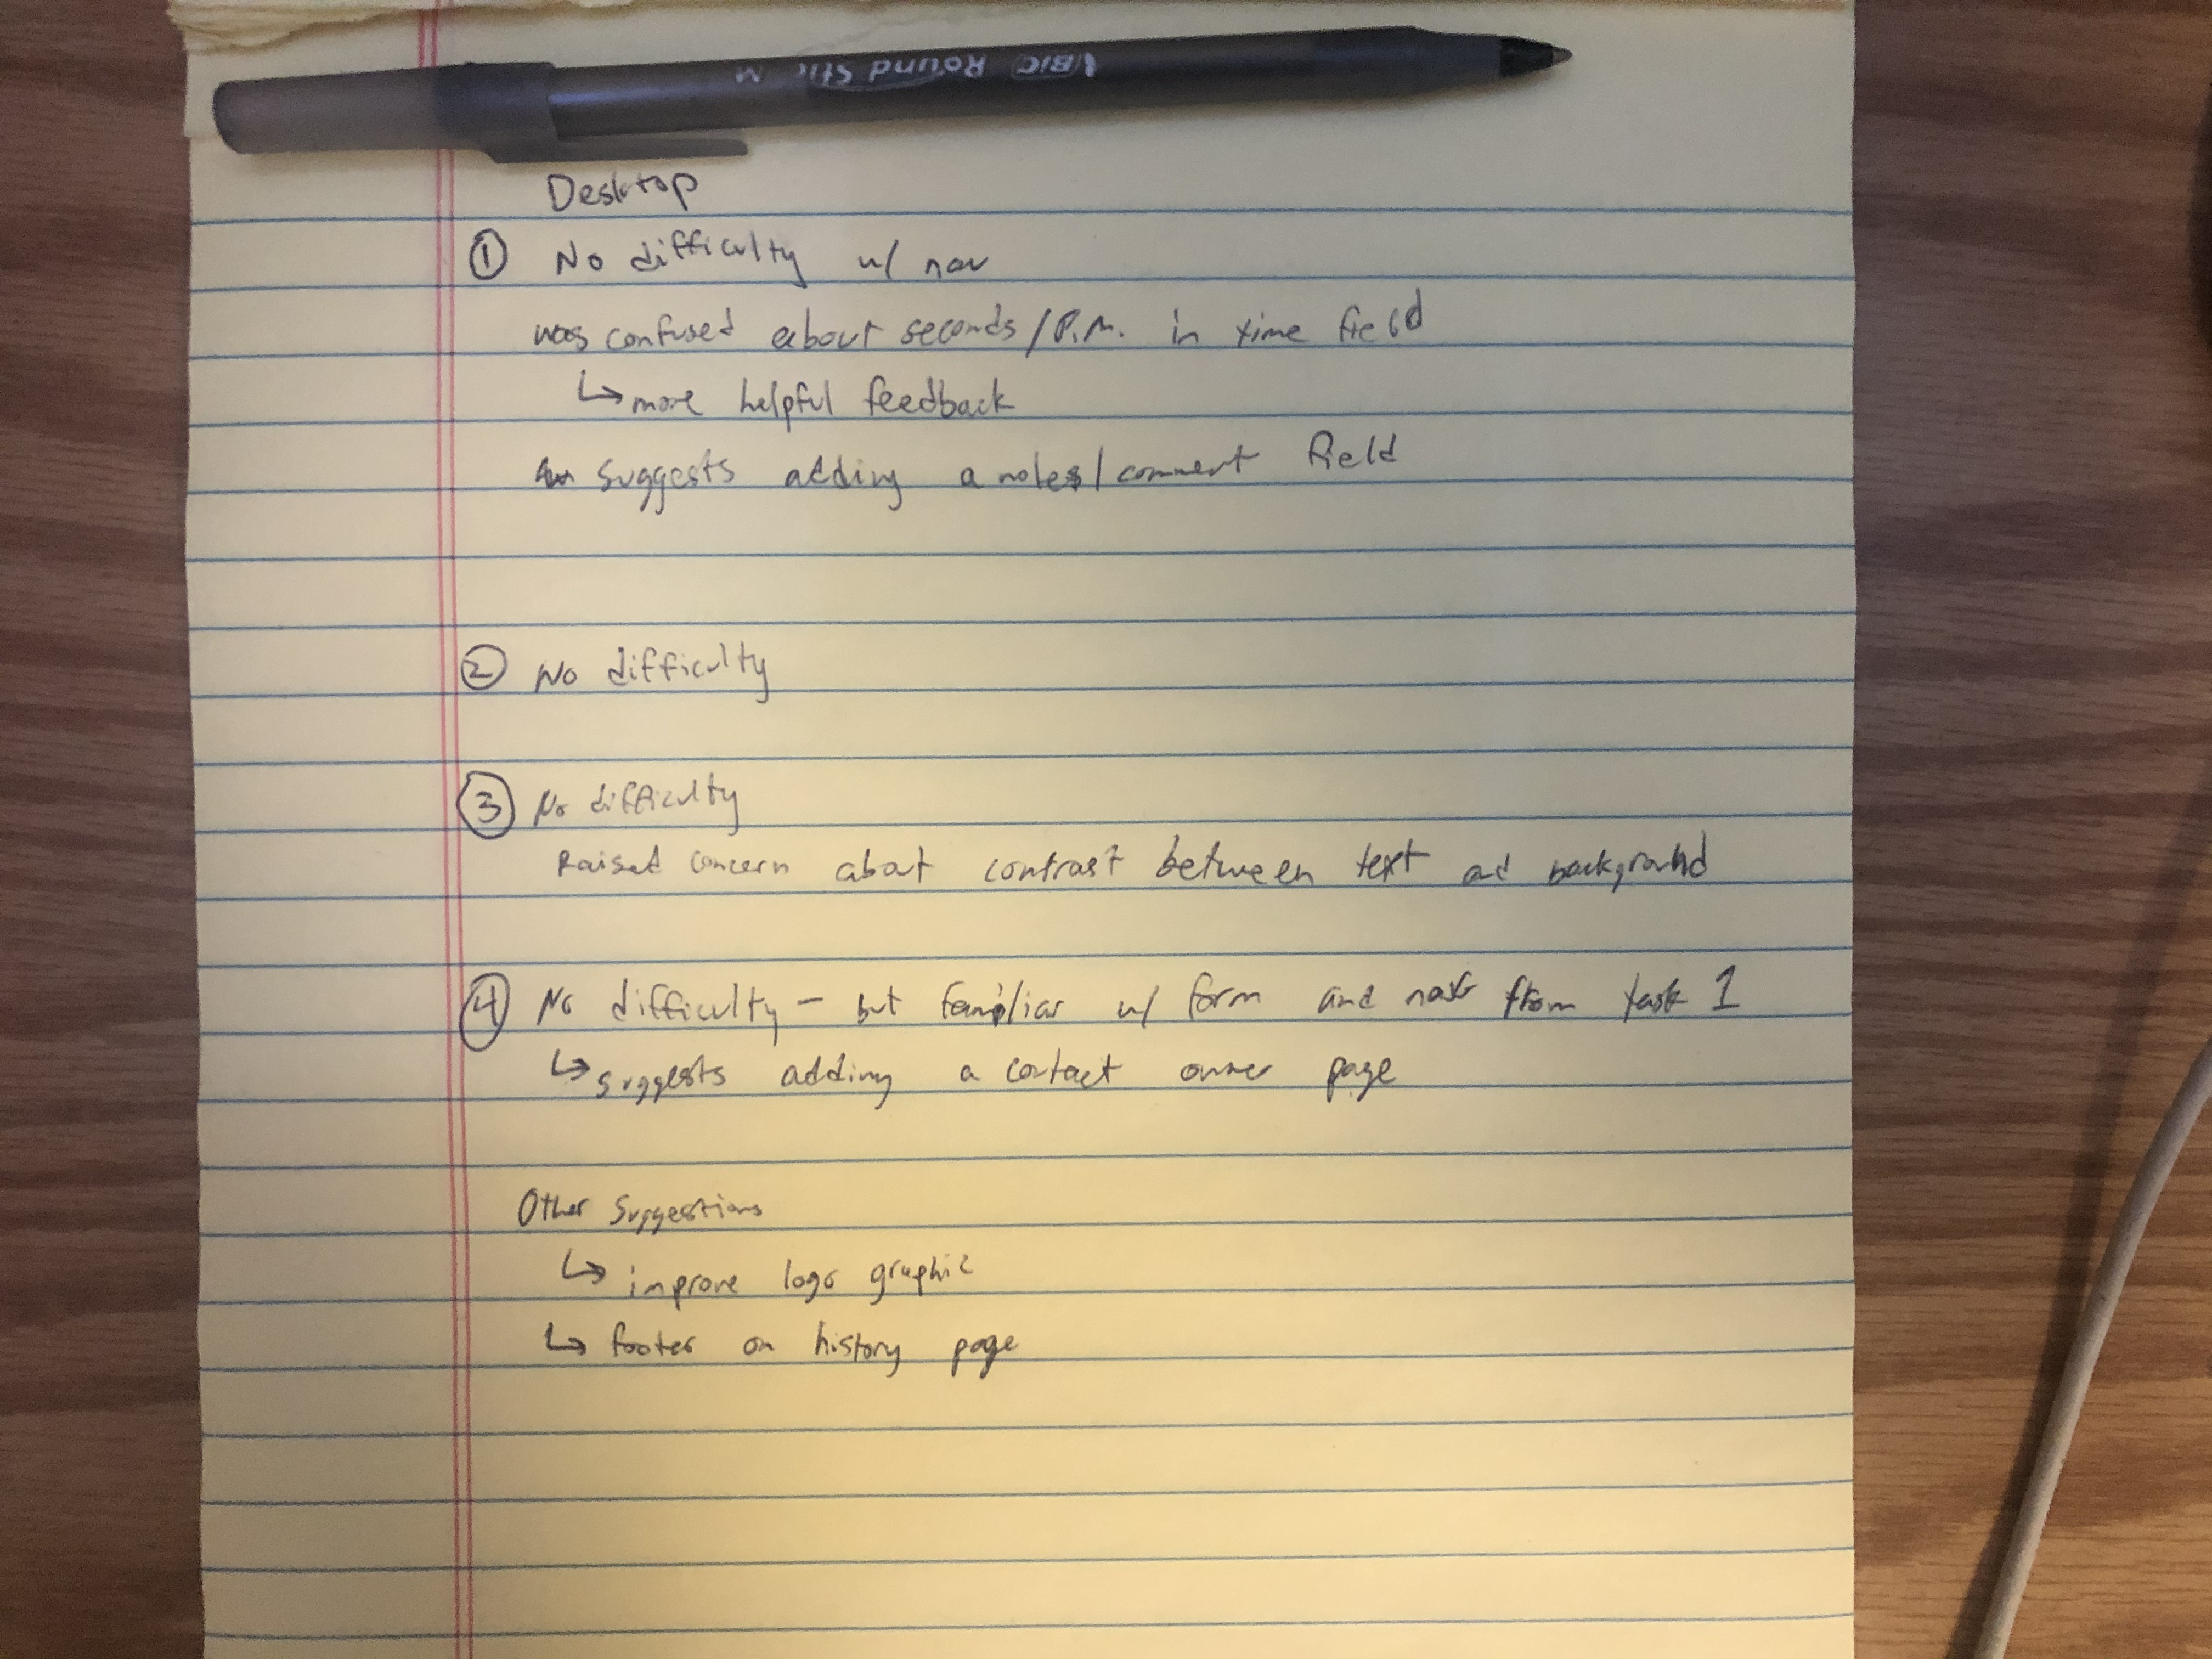 BIC Round Stic M
Desktop
① No difficulty w/ nav
was confused about seconds / P.M. in time field
↳ more helpful feedback
suggests adding a notes/comment field
② No difficulty
③ No difficulty
Raised concern about contrast between text ad background
④ No difficulty - but familiar w/ form and nav from task 1
↳ suggests adding a contact owner page
Other Suggestions
↳ improve logo graphic
↳ footer on history page